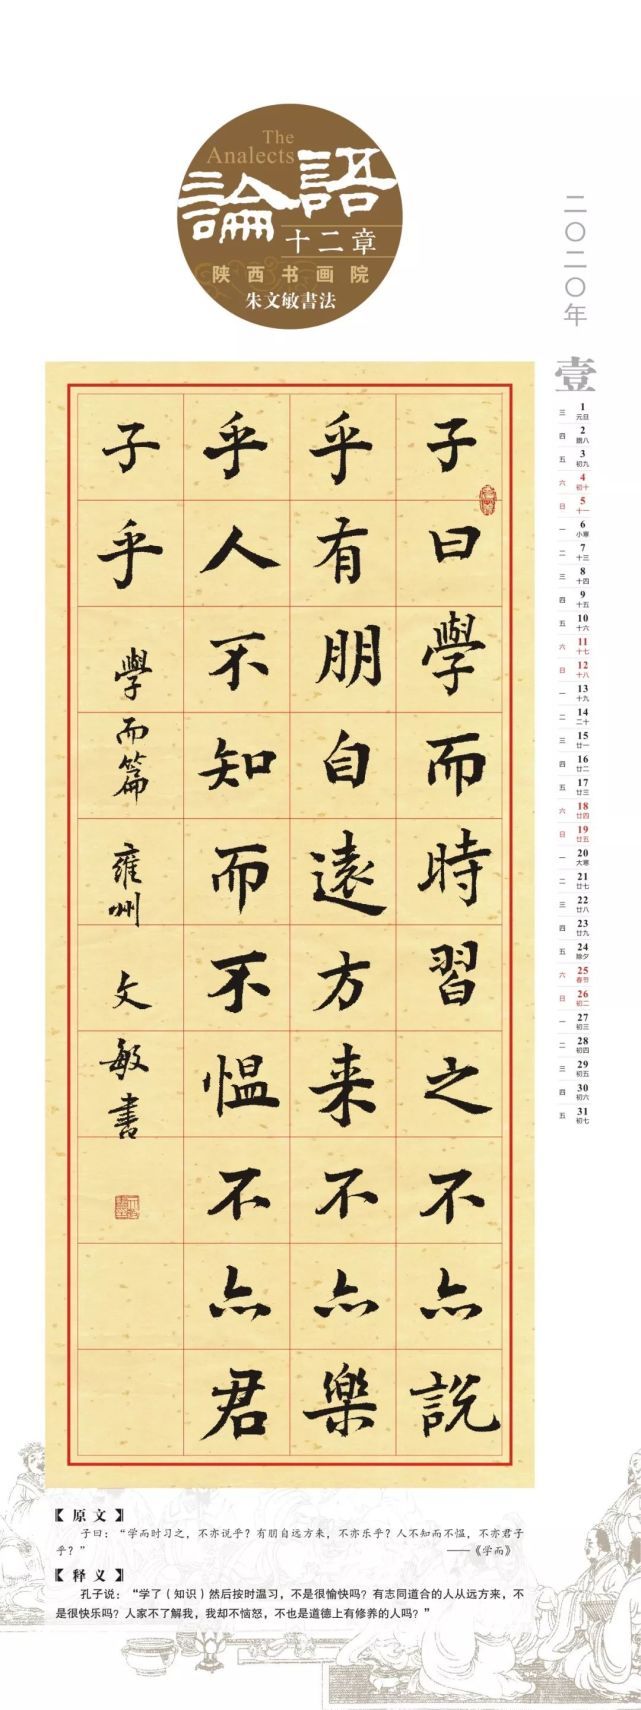 The
Analects
論語
十二章
陕西书画院
朱文敏書法
二〇二〇年
壹
子曰學而時習之不亦說
乎有朋自遠方来不亦樂
乎人不知而不愠不亦君
子乎 學而篇 雍州 文敏書
三 1 元旦
四 2 腊八
五 3 初九
六 4 初十
日 5 十一
一 6 小寒
二 7 十三
三 8 十四
四 9 十五
五 10 十六
六 11 十七
日 12 十八
一 13 十九
二 14 二十
三 15 廿一
四 16 廿二
五 17 廿三
六 18 廿四
日 19 廿五
一 20 大寒
二 21 廿七
三 22 廿八
四 23 廿九
五 24 除夕
六 25 春节
日 26 初二
一 27 初三
二 28 初四
三 29 初五
四 30 初六
五 31 初七
【原文】
子曰：“学而时习之，不亦说乎？有朋自远方来，不亦乐乎？人不知而不愠，不亦君子
乎？” ——《学而》
【释义】
孔子说：“学了（知识）然后按时温习，不是很愉快吗？有志同道合的人从远方来，不
是很快乐吗？人家不了解我，我却不恼怒，不也是道德上有修养的人吗？”